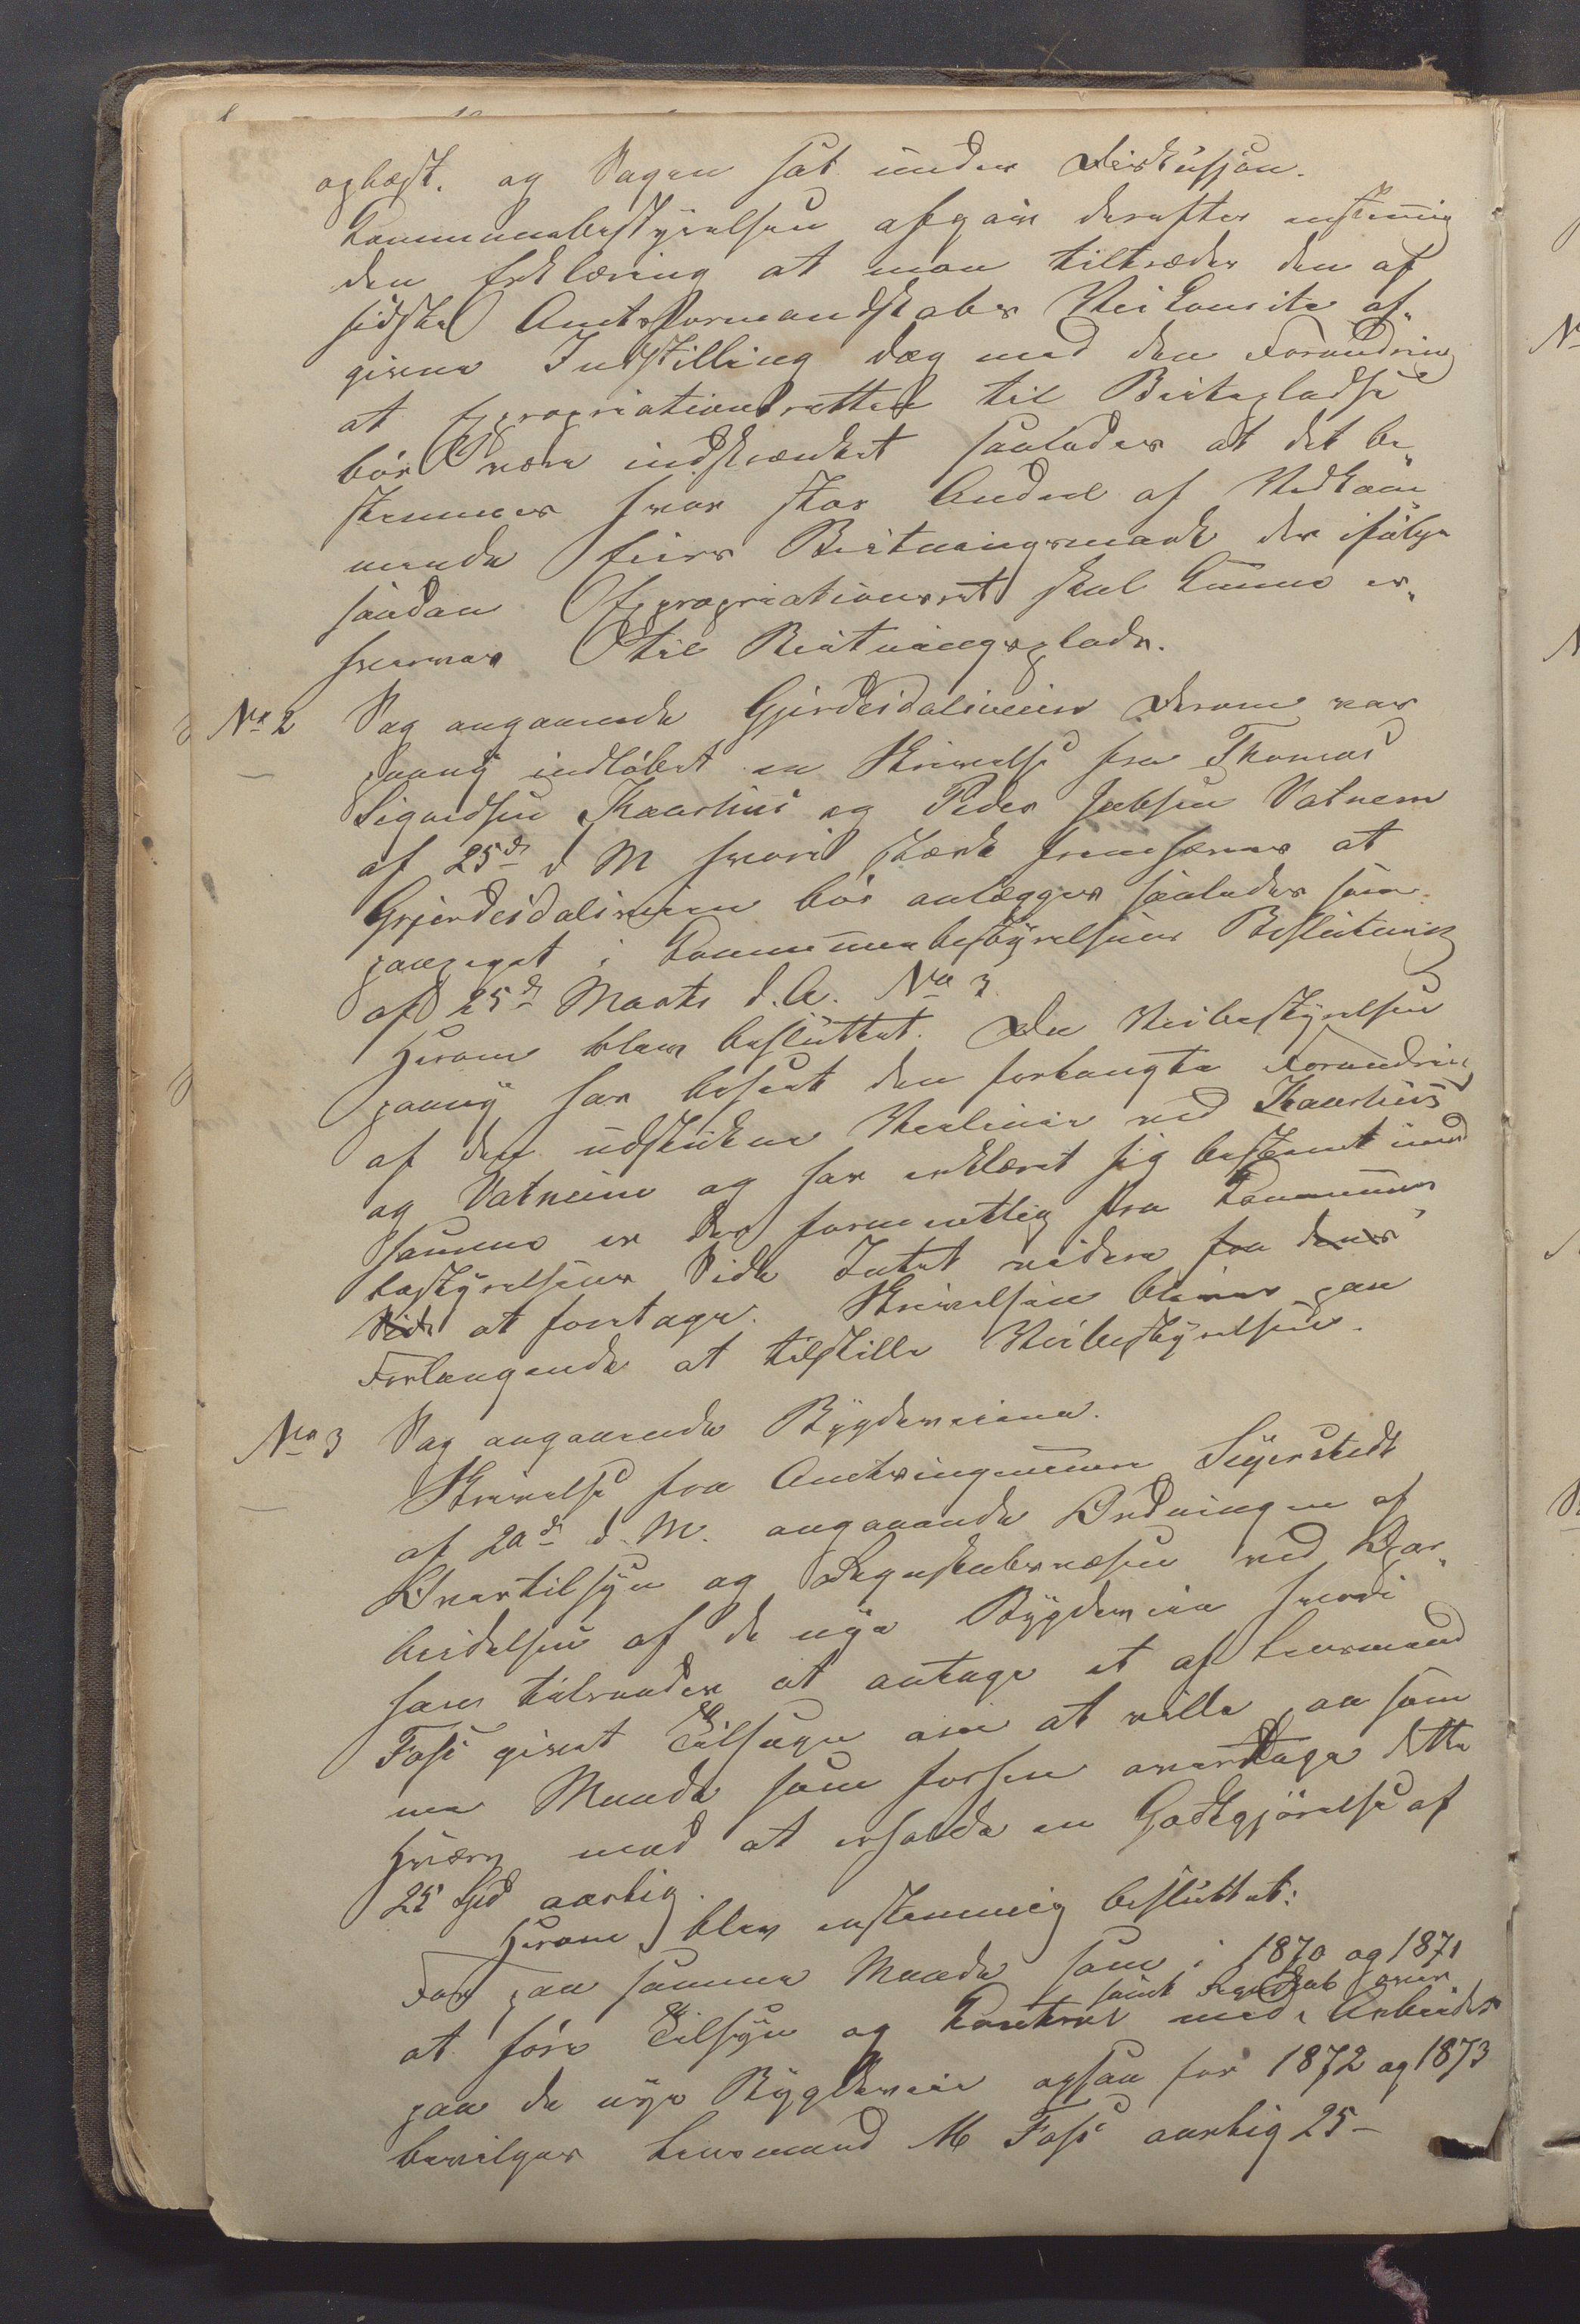 oplæst. og Sagen sat under Diskussjon.
Kommunebestyrelsen afgav derefter enstemig
den Erklæring at man tiltræder den af
sidste Amtsformandskabs Veikomite af-
givne Indstilling dog med den Forandring
at Expropriationsretten til Beitepladse
bør være indskrænket saaledes at det be-
stemmes hvor stor Andeel af Vedkom
mende Eiers Beitningsmark der ifølge
saadan Expropriationsret skal kunne er-
hverves til Beitningsplads.
No 2 Sag angaaende Gjerdesdalsveien Derom var
paany indløbet en Skrivelse fra Thomas
Sigurdsen Kaarhus og Peder Jakobsen Vatnem
af 25de d M hvori stærk fremhæves at
Gjerdesdalsveien bør anlægges saaledes som
paapeget i Kommunebestyrelsens Beslutning
af 25de Marts d. A. No 3
Herom blev besluttet. Da Veibestyrelsen
paany har beseet den forlangte Forandring
af den udstukne Veilinie ved Kaarhus
og Vatnem og har erklæret sig bestemt imod
samme er der formentlig fra Kommune
bestyrelsens Side Intet videre fra dens
Side at foretage. Skrivelsen blev paa
Forlangende at tilstille Veibestyrelsen.
No 3 Sag angaaende Bygdeveiene.
Skrivelse fra Amtsingeniør Segerstedt
af 20de d. M. angaaende Ordningen af
Overtilsyn og Regnskabsvæsen ved Opar-
beidelsen af de nye Bygdeveie hvori
han tilraader at antage et af Lensmand
Foss givet Tilsagn om at ville paa sam
me Maade som forhen overtage dette
Hverv mod at erholde en Godtgjørelse af
25 Spd aarlig.
Herom blev enstemmig besluttet:
For paa samme Maade som i 1870 og 1871
at føre Tilsyn og Kontrol med samt Regnskab over Arbeidet
paa de nye Bygdeveie ogsaa for 1872 og 1873
bevilges Lensmand M Foss aarlig 25 –